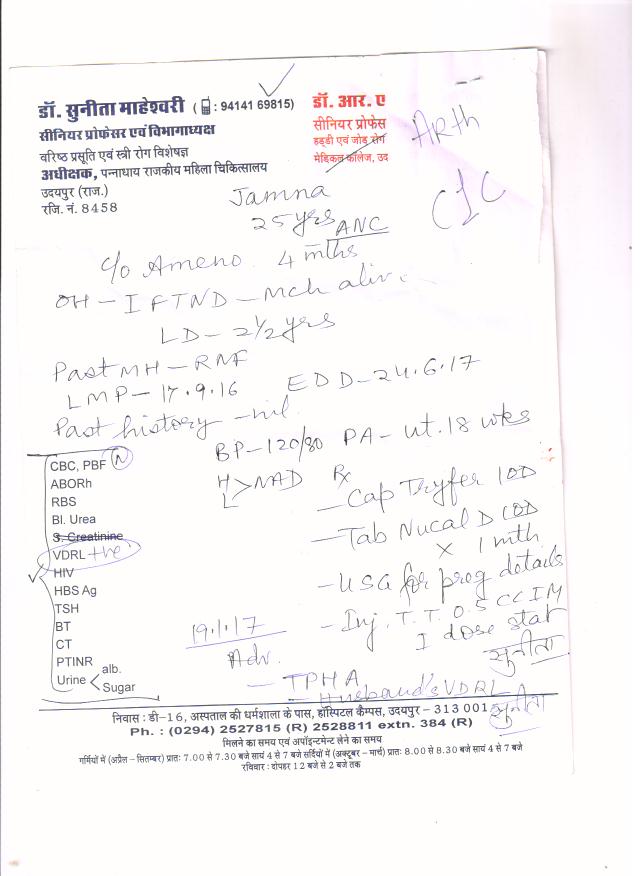 डॉ. सुनीता माहेश्वरी ( : 94141 69815)
सीनियर प्रोफेसर एवं विभागाध्यक्ष
वरिष्ठ प्रसूति एवं स्त्री रोग विशेषज्ञ
अधीक्षक, पन्नाधाय राजकीय महिला चिकित्सालय
उदयपुर (राज.)
रजि. नं. 8458
डॉ. आर. ए
सीनियर प्रोफेस
हड्डी एवं जोड़ रोग
मेडिकल कॉलेज, उद
ARth
CIC
Jamna
25 yrs ANC
c/o Ameno. 4 mths
OH - I FTND - Mch alive
LD - 2 1/2 yrs
Past MH - RMF
LMP - 17.9.16 EDD - 24.6.17
Past history - nil.
BP - 120/80 PA - ut. 18 wks
H
L > NAD
Rx
- Cap Tryfer 1OD
- Tab Nucal D 1OD
x 1 mth
- USG for preg details
- Inj. T.T. 0.5 CC IM
I dose stat
सुनीता
CBC, PBF N
ABORh
RBS
Bl. Urea
S. Creatinine
VDRL +he
HIV
HBS Ag
TSH
BT
CT
PTINR
Urine < alb.
Sugar
19.1.17
Adv.
- TPHA
- Husband's VDRL
सुनीता
निवास : डी-16, अस्पताल की धर्मशाला के पास, हॉस्पिटल कैम्पस, उदयपुर - 313 001
Ph. : (0294) 2527815 (R) 2528811 extn. 384 (R)
मिलने का समय एवं अपॉइन्टमेन्ट लेने का समय
गर्मियों में (अप्रैल - सितम्बर) प्रातः 7.00 से 7.30 बजे सायं 4 से 7 बजे सर्दियों में (अक्टूबर - मार्च) प्रातः 8.00 से 8.30 बजे सायं 4 से 7 बजे
रविवार : दोपहर 12 बजे से 2 बजे तक